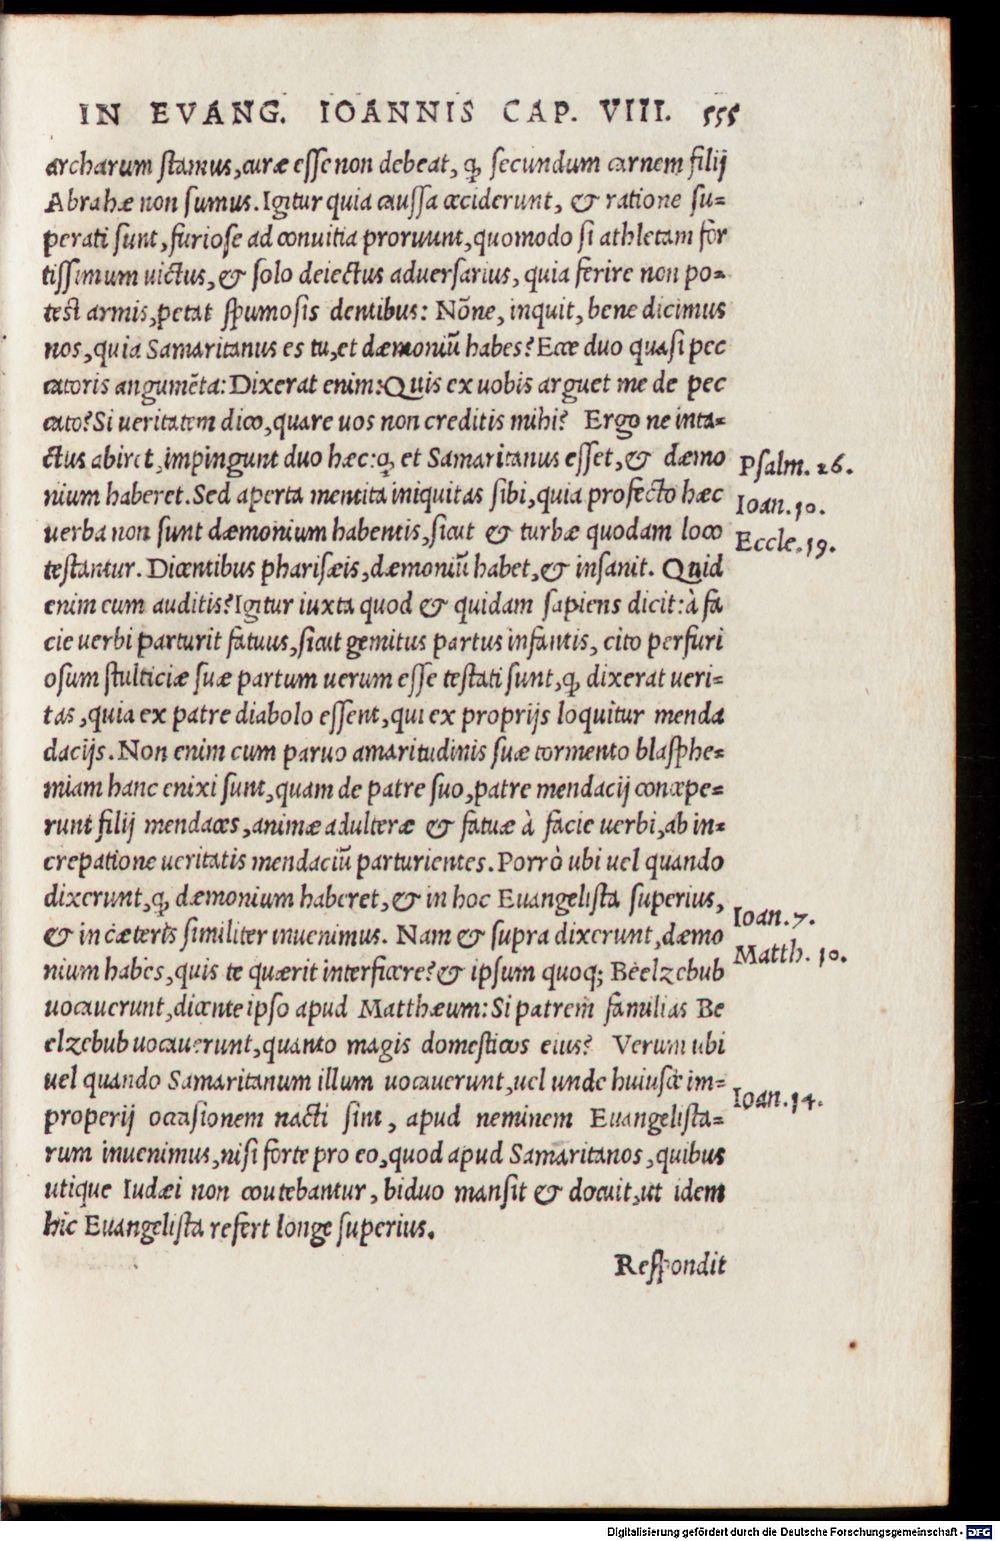 IN EVANG. IOANNIS CAP. VIII. 555
archarum stamus, curæ esse non debeat, ꝙ secundum carnem filij
Abrahæ non sumus. Igitur quia caussa ceciderunt, & ratione su-
perati sunt, furiose ad conuitia proruunt, quomodo si athletam for
tissimum uictus, & solo deiectus aduersarius, quia ferire non po-
test armis, petat spumosis dentibus: Nõne, inquit, bene dicimus
nos, quia Samaritanus es tu, et dæmoniũ habes? Ecce duo quasi pec
catoris angumẽta: Dixerat enim: Quis ex uobis arguet me de pec
cato? Si ueritatem dico, quare uos non creditis mihi? Ergo ne inta-
ctus abiret, impingunt duo hæc: ꝙ et Samaritanus esset, & dæmo
nium haberet. Sed aperta mentita iniquitas sibi, quia profecto hæc
uerba non sunt dæmonium habentis, sicut & turbæ quodam loco
testantur. Dicentibus pharisæis, dæmoniũ habet, & insanit. Quid
enim eum auditis? Igitur iuxta quod & quidam sapiens dicit: à fa
cie uerbi parturit fatuus, sicut gemitus partus infantis, cito perfuri
osum stulticiæ suæ partum uerum esse testati sunt, ꝙ dixerat ueri-
tas, quia ex patre diabolo essent, qui ex proprijs loquitur menda
dacijs. Non enim cum paruo amaritudinis suæ tormento blasphe-
miam hanc enixi sunt, quam de patre suo, patre mendacij concepe-
runt filij mendaces, animæ adulteræ & fatuæ à facie uerbi, ab in-
crepatione ueritatis mendaciũ parturientes. Porrò ubi uel quando
dixerunt, ꝙ dæmonium haberet, & in hoc Euangelista superius,
& in cæteris similiter inuenimus. Nam & supra dixerunt, dæmo
nium habes, quis te quærit interficere? & ipsum quoq; Beelzebub
uocauerunt, dicente ipso apud Matthæum: Si patrem familias Be
elzebub uocauerunt, quanto magis domesticos eius? Verum ubi
uel quando Samaritanum illum uocauerunt, uel unde huiusce im-
properij occasionem nacti sint, apud neminem Euangelista-
rum inuenimus, nisi forte pro eo, quod apud Samaritanos, quibus
utique Iudæi non coutebantur, biduo mansit & docuit, ut idem
hic Euangelista refert longe superius.
Respondit
Psalm. 26.
Ioan. 10.
Eccle. 19.
Ioan. 7.
Matth. 10.
Ioan. 14.
Digitalisierung gefördert durch die Deutsche Forschungsgemeinschaft - DFG